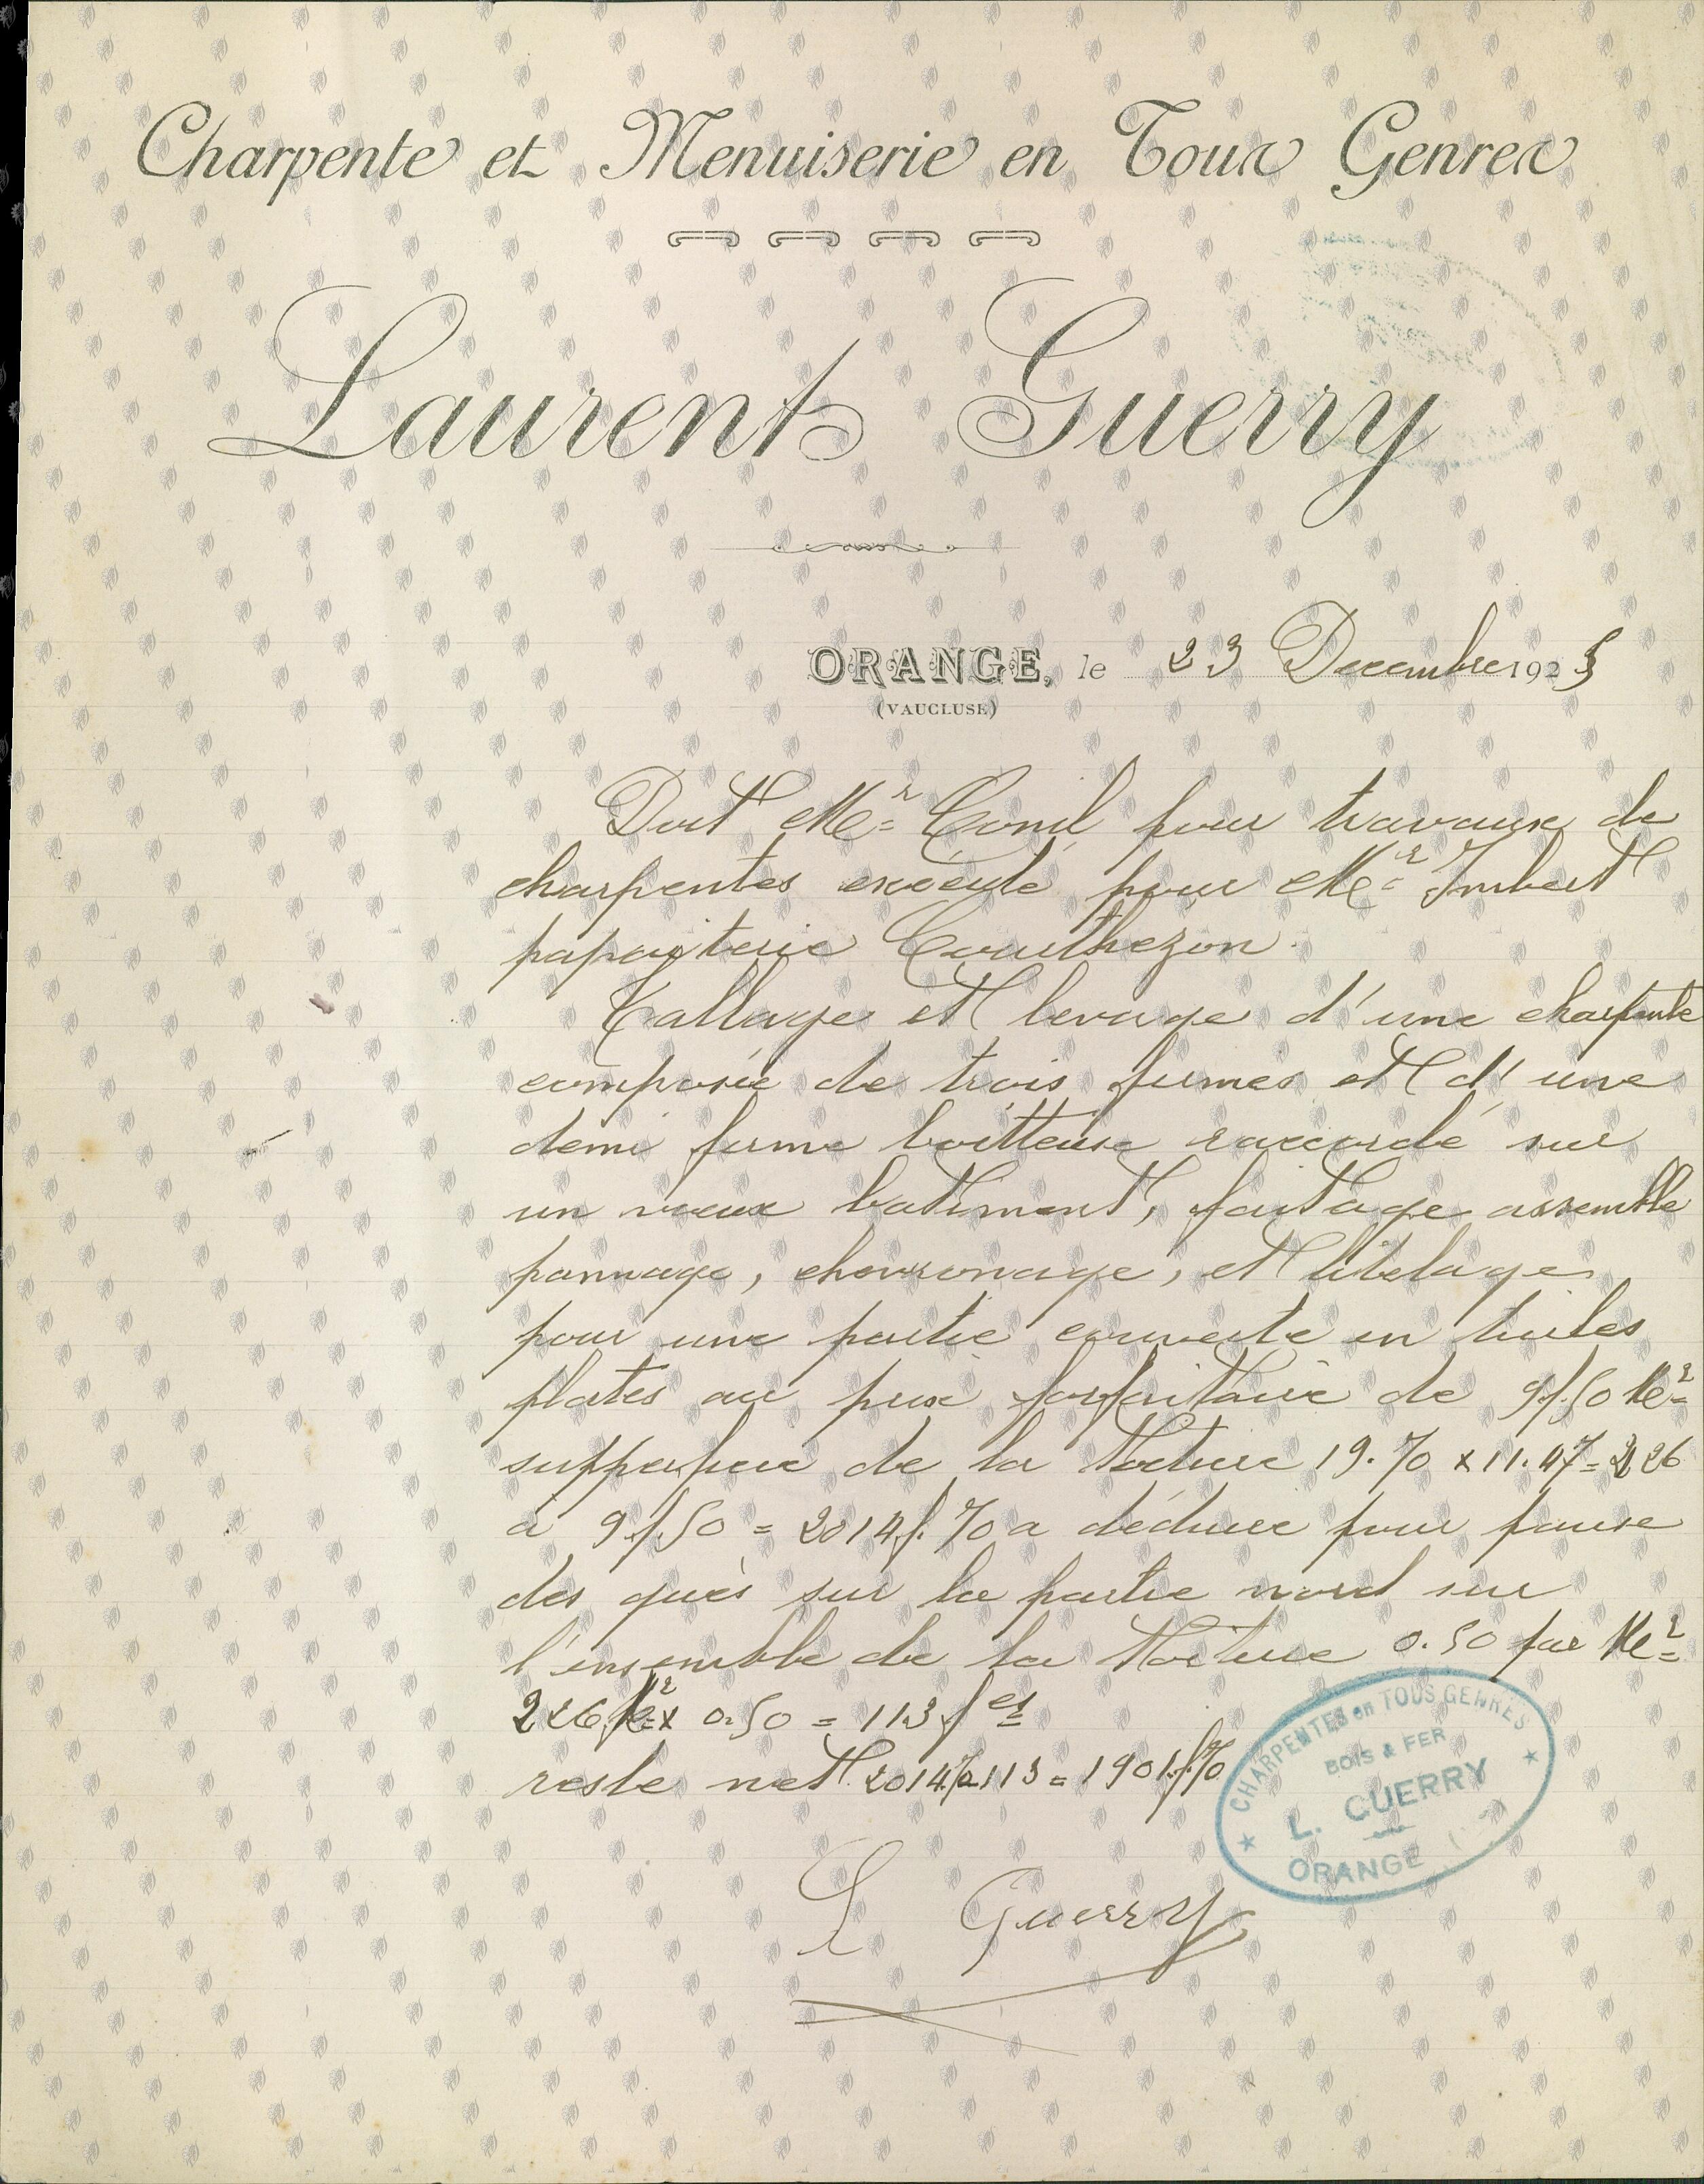 Charpente et Menuiserie en Tous Genres
Laurent Guerry
ORANGE, le 23 Decembre 1925
(VAUCLUSE)
Doit Mr Conil pour travaux de
charpentes exécuté pour Mr Imbert
papeiterie Courthezon.
Tallage et levage d'une charpente
composée de trois fermes et d'une
demi ferme boitteuse raccordé sur
un vieux batiment, faitage assemblé
pannage, chevronage, et litelage
pour une partie couverte en tuiles
plates au prix forfaitaire de 9f50 Me2
supperficie de la toiture 19.70 x 11.47 = 226
à 9f50 = 2014f.70 a déduire pour pause
des qués sur la partie nord sur
l'ensemble de la toiture 0.50 par Me2
226 Me2 x 0.50 = 113 fcs
reste net 2014.70 - 113 = 1901f70
CHARPENTES en TOUS GENRES
BOIS & FER
L. GUERRY
ORANGE
L Guerry